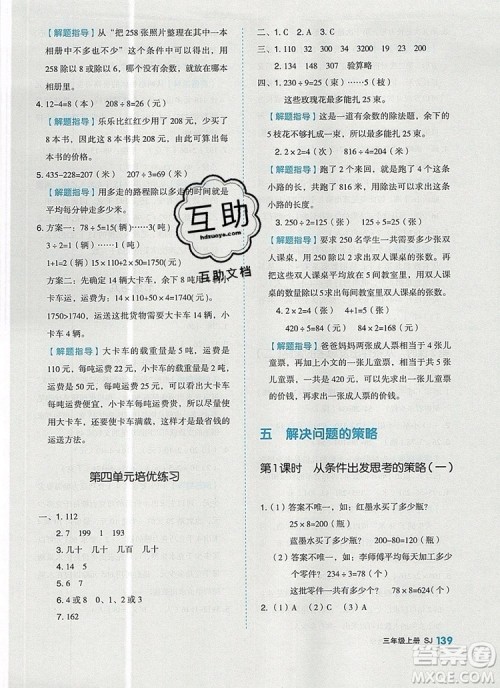 【解题指导】"把 258 张照片整理在一本
相册中不多也不少"这个条件中可以看出
用 258 除以几等于几,没有余数,就是几本
相册里的。
4. 12-4=8(本) 208÷8=26(元)
【解题指导】乐乐比红红少用了208元,少买了
8本书,因此8本书共208元,可以求出每本
书的价格。
5. 435-228=207(米) 207÷3=69(米)
【解题指导】用多走的路程除以多走的时间就是
平均每分钟走多少米。
6. 方案一:78÷5=15(辆)……3(吨)
3÷2=1(辆)……1(吨)
1+1=2(辆)
方案二:先确定 14 辆大卡车,余 8 吨用小
卡车运,运费:14×110+4×50=1740(元)
1750>1740,运费最少需要大卡车 14 辆,小
卡车 4 辆。
【解题指导】大卡车的载重量是 5 吨,运费是
110 元,每吨运费是 22 元,小卡车的载重量是
2 吨,运费是 50 元,每吨运费是 25 元,可以看出大卡
车每吨运费便宜,小卡车每吨运费贵,因此,尽可
能多用大卡车,这样的运送方法才是最省钱的
运送方法。
第四单元培优练习
一、1. 112
2. 7 199 1 193
3. 几十 几十 几百 几十
4. >
5. >
6. 4或8 0、2或8 0或6
7. 162
二、1. C 2. C 3. B 4. A 5. C
三、1. 110 32 300 34 90 300
2. 134 148 307 验算略
四、1. 230÷9=25(束)……5(枝)
这些玫瑰花最多能扎 25 束。
【解题指导】这是一道有余数的除法题,余下的
5 枝花不够扎成一束,因此最多能扎 25 束。
2. 2×2=4(次) 508÷4=127(米)
【解题指导】跑了 2 个来回,就是跑了 4 个这条
小路的长,共跑了 508 米,因此用除法可以求出
小路的长度。
3. 250÷2=125(张) 125-119=6(张)
【解题指导】要求 250 名学生一共需要多少张双
人课桌,可以用除法计算,再用双人课桌的总张
数减去平均每个教室里的双人课桌的张数。
4. 2×2=4(张) 4+1=5(张)
270÷5=54(元) 54×2=108(元)
【解题指导】爸爸妈妈两张成人票相当于 4 张儿
童票,再加上小文的一张儿童票,共 5 张儿童
票,因此可以求出儿童票的价钱,儿童票价钱的
2 倍就是成人票的价钱。
五 解决问题的策略
第1课时 从条件出发思考的策略(一)
1. (1)答案不唯一,如:红墨水买了多少瓶?
25×8=200(瓶)
蓝墨水买了多少瓶? 200-80=120(瓶)
(2)答案不唯一,如:李师傅平均每天加工多少
个零件? 234÷3=78(个) 78×8=624(个)
2. (1)
互助
hdzuoye.com
互助文档
三年级上册 SJ 139
答案圈
MXQE.COM